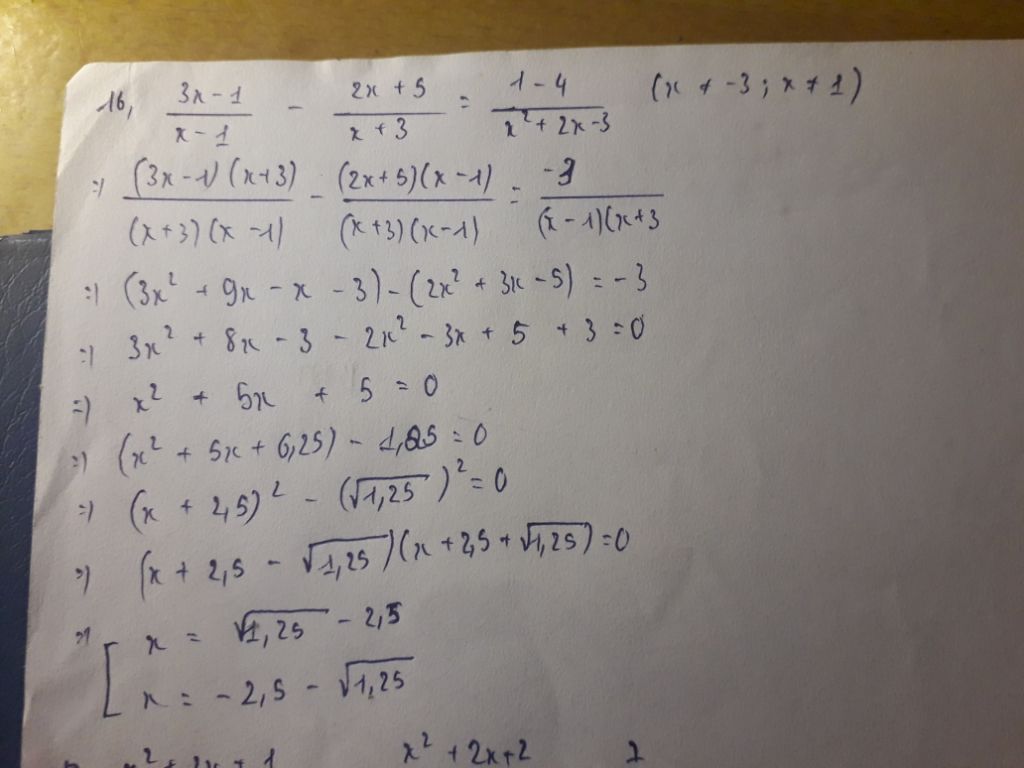 16, \frac{3x-1}{x-1} - \frac{2x+5}{x+3} = \frac{1-4}{x^2+2x-3} (x ≠ -3 ; x ≠ 1)
=) \frac{(3x-1)(x+3)}{(x+3)(x-1)} - \frac{(2x+5)(x-1)}{(x+3)(x-1)} = \frac{-3}{(x-1)(x+3}
=) (3x^2 + 9x - x - 3) - (2x^2 + 3x - 5) = -3
=) 3x^2 + 8x - 3 - 2x^2 - 3x + 5 + 3 = 0
=) x^2 + 5x + 5 = 0
=) (x^2 + 5x + 6,25) - 1,25 = 0
=) (x + 2,5)^2 - (\sqrt{1,25})^2 = 0
=) (x + 2,5 - \sqrt{1,25})(x + 2,5 + \sqrt{1,25}) = 0
=) [ x = \sqrt{1,25} - 2,5
x = -2,5 - \sqrt{1,25}
x^2 + 2x + 2